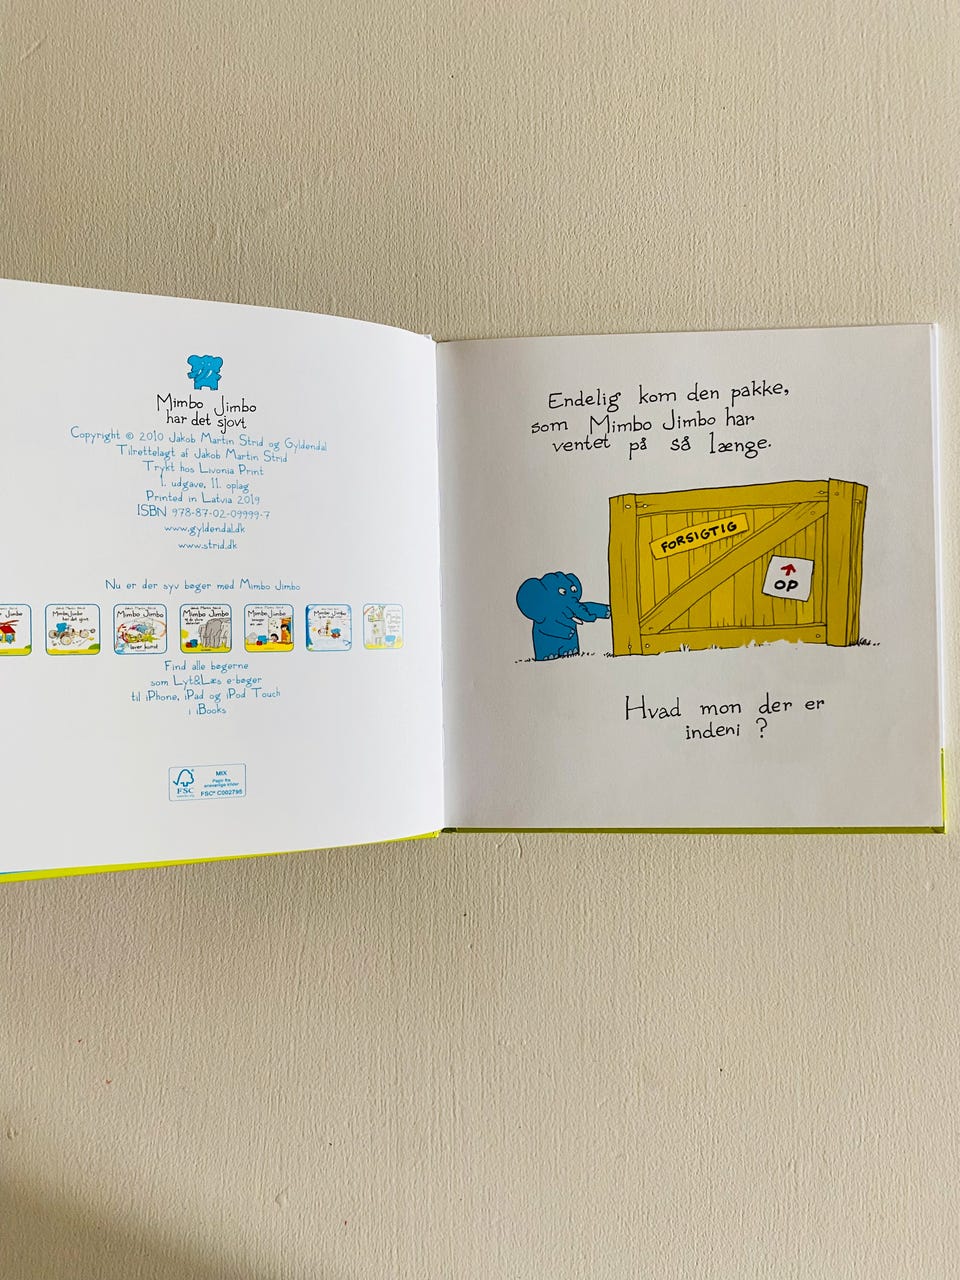 Mimbo Jimbo
har det sjovt
Copyright © 2010 Jakob Martin Strid og Gyldendal
Tilrettelagt af Jakob Martin Strid
Trykt hos Livonia Print
1. udgave, 11. oplag
Printed in Latvia 2019
ISBN 978-87-02-09999-7
www.gyldendal.dk
www.strid.dk
Nu er der syv bøger med Mimbo Jimbo
Mimbo Jimbo
har det sjovt
Mimbo Jimbo
laver kunst
Mimbo Jimbo
Mimbo Jimbo
Find alle bøgerne
som Lyt&Læs e-bøger
til iPhone, iPad og iPod Touch
i iBooks
FSC
MIX
Papir fra
ansvarlige kilder
FSC® C002795
Endelig kom den pakke,
som Mimbo Jimbo har
ventet på så længe.
FORSIGTIG
OP
Hvad mon der er
indeni ?